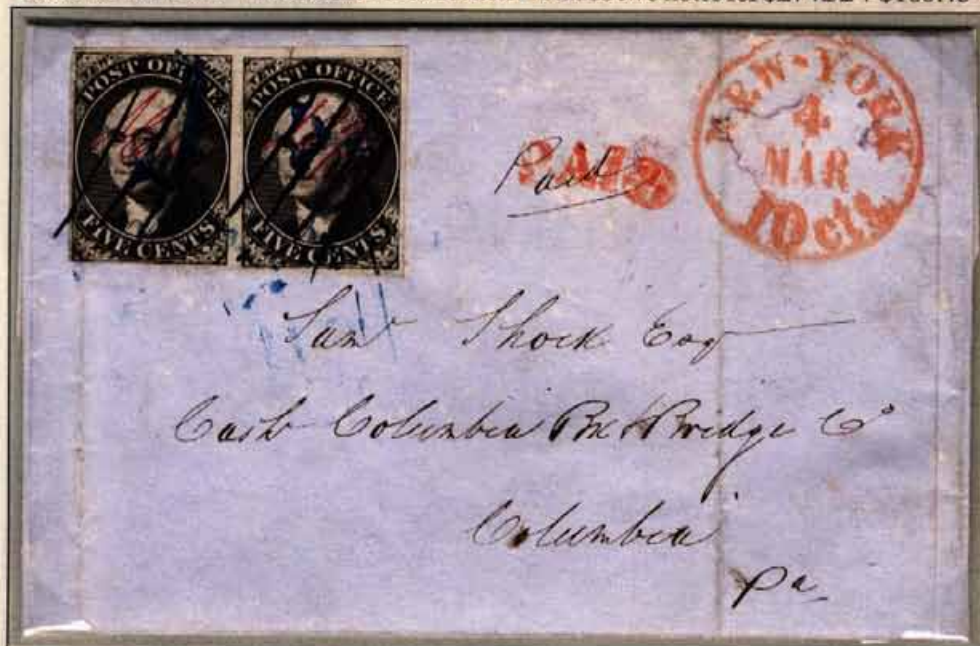 POST OFFICE POST OFFICE
FIVE CENTS FIVE CENTS
Paid
PAID
NEW-YORK
4
MAR
10cts.
Saml Shock Esq
Cash Columbia Bk & Bridge Co
Columbia
Pa